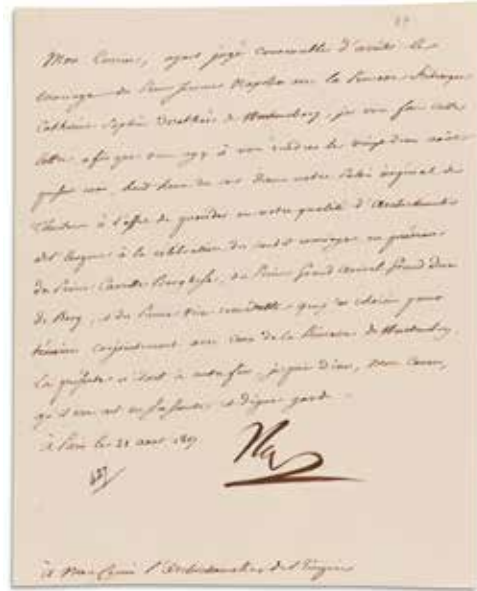 Mon Cousin, ayant jugé convenable d'arrêter le
mariage du Prince Jérome Napoléon avec la Princesse Fréderique
Catherine Sophie Dorothée de Wurtemberg, je vous fais cette
lettre afin que vous ayez à vous rendre le vingt deux août
présent mois, huit heures du soir dans notre Palais impérial des
Tuileries à l'effet de procéder en votre qualité d'Archichancelier
de l'Empire à la célébration du mariage en présence
du Prince Camille Borghèse, du Prince Grand Amiral Grand Duc
de Berg, et du Prince Vice connétable que j'ai choisis pour
témoins conjointement avec ceux de la Princesse de Wurtemberg.
La présente n'étant à autre fin, je prie Dieu, Mon Cousin,
qu'il vous ait en sa sainte et digne garde.
à Paris le 21 août 1807
Nap
à Mon Cousin l'Archichancelier de l'Empire